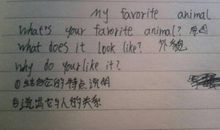 My favorite animal
What's your favorite animal?
What does it look like? 外貌
Why do your like it?
①结合它的特点说明
②说出它与人的关系